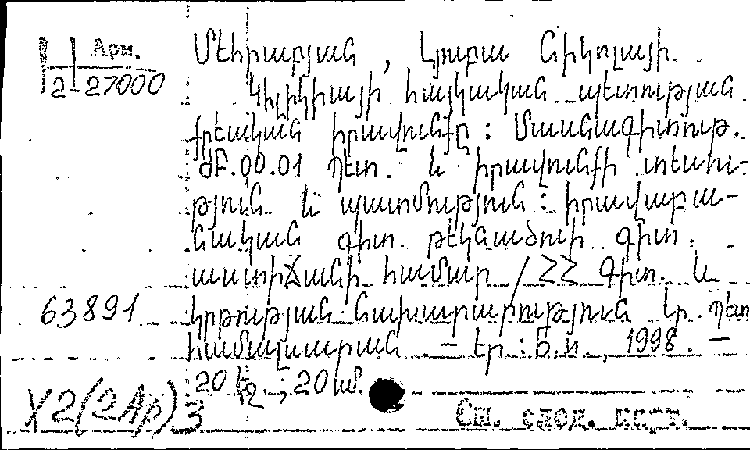 Арм.
2-27000
Մեհրաբյան , Լյուբա Նիկոլայի
Կիլիկիայի հայկական պետության
քրեական իրավունքը : Մասնագիտութ.
ԺԲ.00.01 պետ. և իրավունքի տեսու-
թյուն և պատմություն : իրավաբա-
նական գիտ. թեկնածուի գիտ.
աստիճանի համար / ՀՀ Գիտ. և
63891 կրթության նախարարություն Եր. պետ
համալսարան — Եր : Ե.Ո , 1998. —
20 էջ ; 20 սմ.
X2(2Ap)3
См. след. карт.